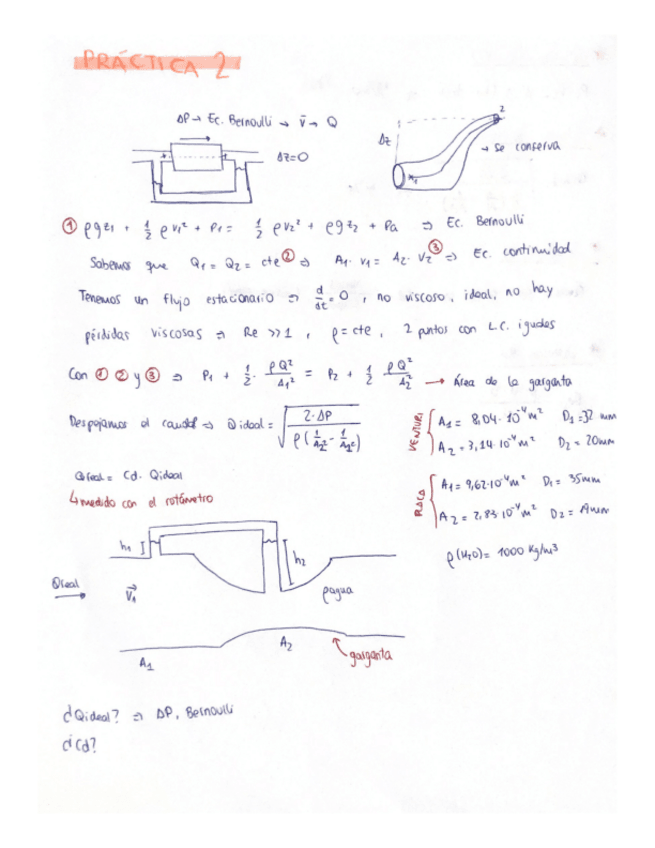 PRÁCTICA 2
ΔP → Ec. Bernoulli → v̄ → Q
Δz=0
1
2
Δz
1
→ se conserva
① ρgz₁ + 1/2 ρv₁² + P₁ = 1/2 ρv₂² + ρgz₂ + Pa ⇒ Ec. Bernoulli
Sabemos que Q₁ = Q₂ = cte ② ⇒ A₁· v₁ = A₂· v₂ ③ ⇒ Ec. continuidad
Tenemos un flujo estacionario ⇒ d/dt = 0, no viscoso, ideal, no hay
pérdidas viscosas ⇒ Re >> 1, ρ = cte, 2 puntos con L.C. iguales
Con ① ② y ③ ⇒ P₁ + 1/2 · ρQ²/A₁² = P₂ + 1/2 ρQ²/A₂² → Área de la garganta
Despejamos el caudal ⇒ Qideal = √(2·ΔP / ρ(1/A₂² - 1/A₁²))
VENTURI
A₁ = 8,04·10⁻⁴ m² D₁ = 32 mm
A₂ = 3,14·10⁻⁴ m² D₂ = 20mm
Qreal = Cd. Qideal
↳ medido con el rotámetro
A₁ = 9,62·10⁻⁴ m² D₁ = 35mm
A₂ = 2,83·10⁻⁴ m² D₂ =
ρ(H₂O) = 1000 Kg/m³
h₁
h₂
Qreal
v⃗₁
ρagua
A₁
A₂
garganta
¿Qideal? ⇒ ΔP, Bernoulli
¿Cd?